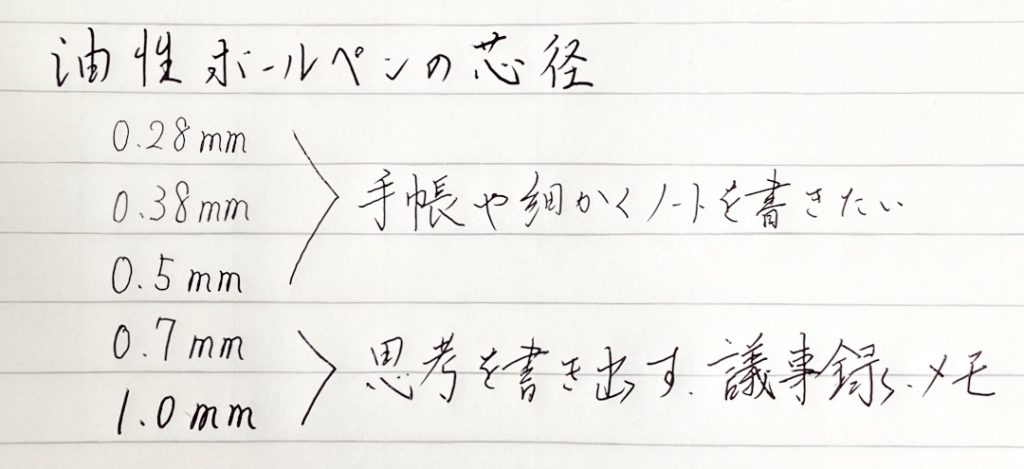 油性ボールペンの芯径
0.28mm
0.38mm
手帳や細かくノートを書きたい
0.5mm
0.7mm
思考を書き出す、議事録、メモ
1.0mm